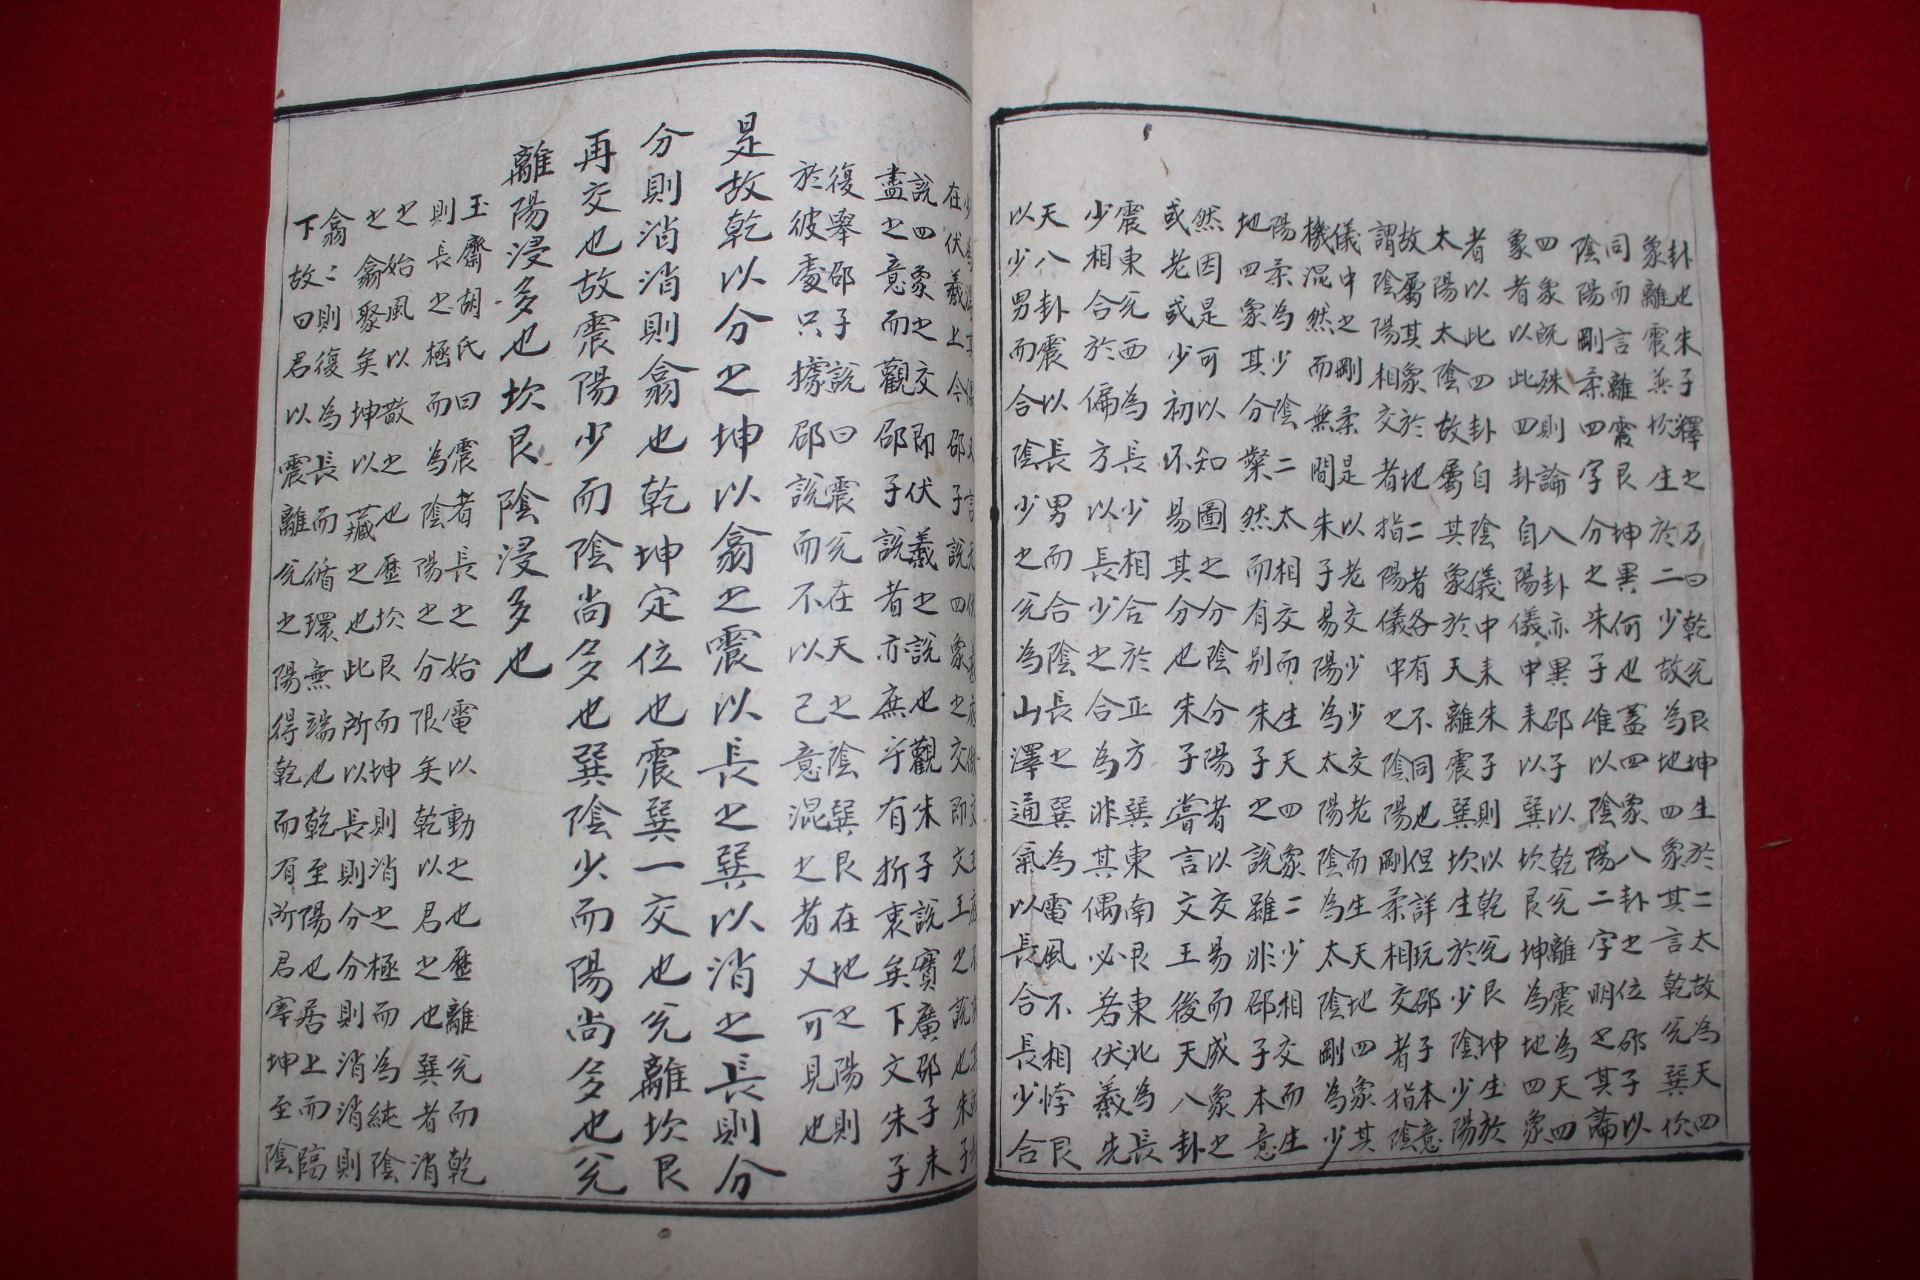 卦也朱子釋之乃曰乾兌艮坤生於二太故為天四
象離震巽坎生於二少故為地四象其言乾兌巽坎
同而言離震艮坤異何也蓋四象八卦之位邵子以
陰陽剛柔四字分之朱子惟以陰陽二字明之其論
四象既殊則論八卦亦異邵子以乾兌離震為天四
象者以此四卦自陽儀中来以巽坎艮坤為地四象
者以此四卦自陰儀中来朱子則以乾兌艮坤生於
太陽太陰故屬其象於天離震巽坎生於少陰少陽
故屬其象於地二者各有不同也但詳玩邵子本意
謂陰陽相交者指陽儀中之陰陽剛柔相交者指陰
儀中之剛柔是以老交少少交老而生天地四象其
機混然而無間朱子易陽為太陽陰為太陰剛為少
陽柔為少陰二太相交而生天四象二少相交而生
地四象其分粲然而有別朱子之說雖非邵子本意
然因是可以知圖之分陰分陽者以交易而成象之
或老或少初不易其分也朱子嘗言文王後天八卦
震東兌西為長少相合於正方巽東南艮東北為長
少相合於偏方以長少之合為非其偶必若伏羲先
天八卦震以長男而合陰長之巽為雷風不相悖艮
以少男而合陰少之兌為山澤通氣以長合長少合
在伏羲上今邵子說四象之交即文王之說也朱子
說四象之交即伏羲之說也觀朱子說實廣邵子未
盡之意而觀邵子說者亦庶乎有折衷矣下文朱子
復舉邵子說曰震兌在天之陰巽艮在地之陽則
於彼處只據邵說而不以己意混之者又可見也
是故乾以分之坤以翕之震以長之巽以消之長則分
分則消消則翕也乾坤定位也震巽一交也兌離坎艮
再交也故震陽少而陰尚多也巽陰少而陽尚多也兌
離陽浸多也坎艮陰浸多也
玉齋胡氏曰震者長之始雷以動之也歷離兌而乾
則長之極而為陰陽之分限矣乾以君之也巽者消
之始風以散之也歷坎艮而坤則消之極而為純陰
之翕聚矣坤以藏之也此所以長則分分則消消則
翕〻則復為長而循環無端也乾至陽也居上而臨
下故曰君以震離兌之陽得乾而有所君宰坤至陰